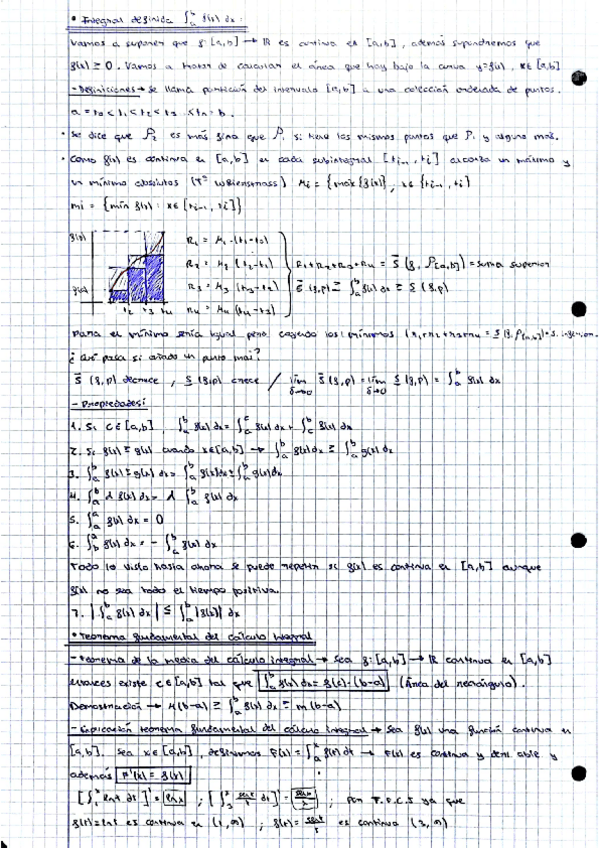 • Integral definida ∫_a^b f(x) dx:
Vamos a suponer que f: [a,b] → ℝ es continua en [a,b], además supondremos que
f(x) ≥ 0. Vamos a tratar de calcular el área que hay bajo la curva y=f(x), x∈[a,b]
- Definiciones → Se llama partición del intervalo [a,b] a una colección ordenada de puntos.
a = t₀ < t₁ < t₂ < t₃ .. < tₙ = b.
• Se dice que P₂ es más fina que P₁ si tiene los mismos puntos que P₁ y alguno más.
• Como f(x) es continua en [a,b] en cada subintegral [tᵢ₋₁, tᵢ] alcanza un máximo y
un mínimo absolutos (Tª Weierstrass) Mᵢ = {max{f(x)}, x∈ {tᵢ₋₁, tᵢ)
mi = {min f(x) : x∈[tᵢ₋₁, tᵢ]}
R₁ = M₁·(t₁-t₀)
R₂ = M₂ (t₂-t₁)
R₃ = M₃ (t₃-t₂)
R₄ = M₄ (t₄-t₃)
R₁+R₂+R₃+R₄ = S̄ (f, P[a,b]) = suma superior
S̄ (f,P) ≥ ∫_a^b f(x) dx ≥ S̲ (f,P)
t₂ t₃ t₄
Para el mínimo sería igual pero cogiendo los mínimos (r₁+r₂+r₃+r₄ = S̲ (f, P[a,b]) = s. inferior.
¿Qué pasa si añado un punto más?
S̄ (f,P) decrece, S̲ (f,P) crece / lim_{δ→0} S̄ (f,P) = lim_{δ→0} S̲ (f,P) = ∫_a^b f(x) dx
- Propiedades:
1. Si c∈[a,b], ∫_a^b f(x) dx = ∫_a^c f(x) dx + ∫_c^b f(x) dx
2. Si f(x) ≥ g(x) cuando x∈[a,b] → ∫_a^b f(x) dx ≥ ∫_a^b g(x) dx
3. ∫_a^b f(x) ± g(x) dx = ∫_a^b f(x) dx ± ∫_a^b g(x) dx
4. ∫_a^b λ f(x) dx = λ ∫_a^b f(x) dx
5. ∫_a^a f(x) dx = 0
6. ∫_b^a f(x) dx = - ∫_a^b f(x) dx
Todo lo visto hasta ahora se puede repetir si f(x) es continua en [a,b] aunque
f(x) no sea todo el tiempo positiva.
7. |∫_a^b f(x) dx| ≤ ∫_a^b |f(x)| dx
• Teorema fundamental del cálculo integral
- Teorema de la media del cálculo integral → Sea f: [a,b] → ℝ continua en [a,b]
entonces existe c∈[a,b] tal que ∫_a^b f(x) dx = f(c)·(b-a) (Área del rectángulo).
Demostración → M(b-a) ≥ ∫_a^b f(x) dx ≥ m(b-a)
- Explicación teorema fundamental del cálculo integral → Sea f(x) una función continua en
[a,b]. Sea x∈[a,b], definimos F(x) = ∫_a^x f(t) dt → F(x) es continua y derivable y
además F'(x) = f(x)
[∫_1^x ln t dt]' = ln x ; [∫_3^x sen t/t dt]' = sen x/x ; Por T.F.C.I ya que
f(t) = ln t es continua en (1,∞) ; f(t) = sen t/t es continua (3,∞)